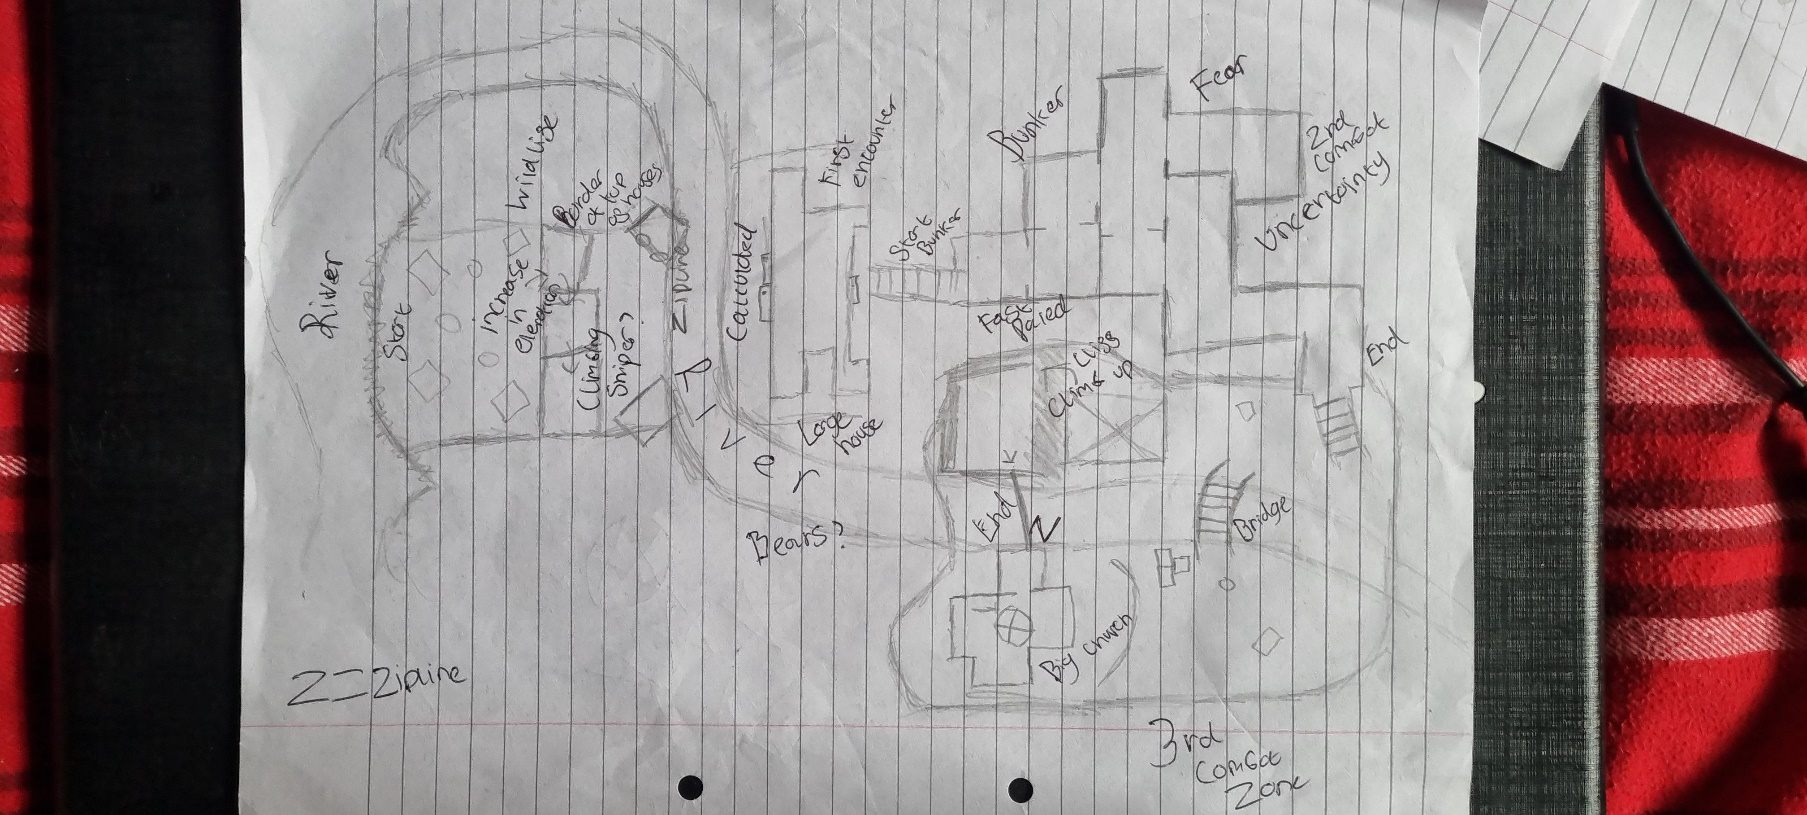 River
Start
increase
in
elevation
wildlise
Border
at top
of houses
Climbing
Sniper?
Zipline
RIVER
Calculated
First
encounter
Large
house
Bears?
Start
Bunker
Bunker
Fear
2nd
Combat
Uncertainty
Fast
Paced
Cliff
Climb up
End
End
Z
Bridge
Big church
Z=Zipline
3rd
Combat
Zone